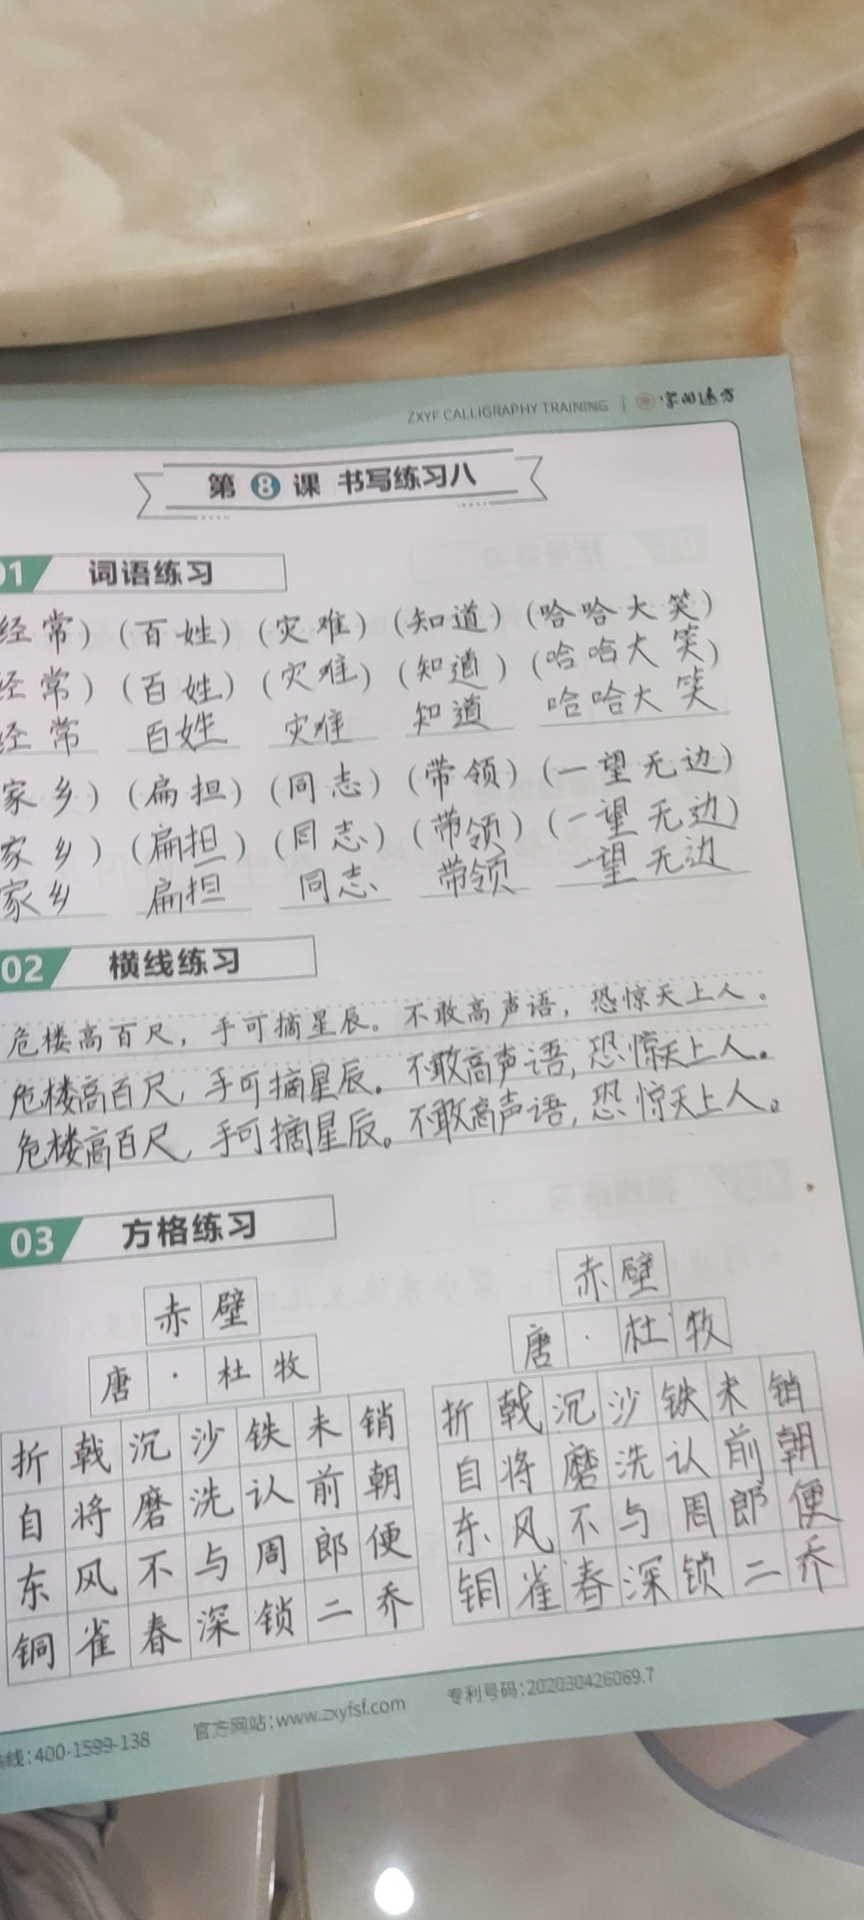 ZXYF CALLIGRAPHY TRAINING | 字如逸方
第 8 课 书写练习八
01 词语练习
经常) (百姓) (灾难) (知道) (哈哈大笑)
经常) (百姓) (灾难) (知道) (哈哈大笑)
经常 百姓 灾难 知道 哈哈大笑
家乡) (扁担) (同志) (带领) (一望无边)
家乡) (扁担) (同志) (带领) (一望无边)
家乡 扁担 同志 带领 一望无边
02 横线练习
危楼高百尺，手可摘星辰。不敢高声语，恐惊天上人。
危楼高百尺，手可摘星辰。不敢高声语，恐惊天上人。
危楼高百尺，手可摘星辰。不敢高声语，恐惊天上人。
03 方格练习
赤壁
唐·杜牧
折戟沉沙铁未销
自将磨洗认前朝
东风不与周郎便
铜雀春深锁二乔
赤壁
唐·杜牧
折戟沉沙铁未销
自将磨洗认前朝
东风不与周郎便
铜雀春深锁二乔
线：400-1599-138 官方网站：www.zxyfsf.com 专利号码：202030426069.7